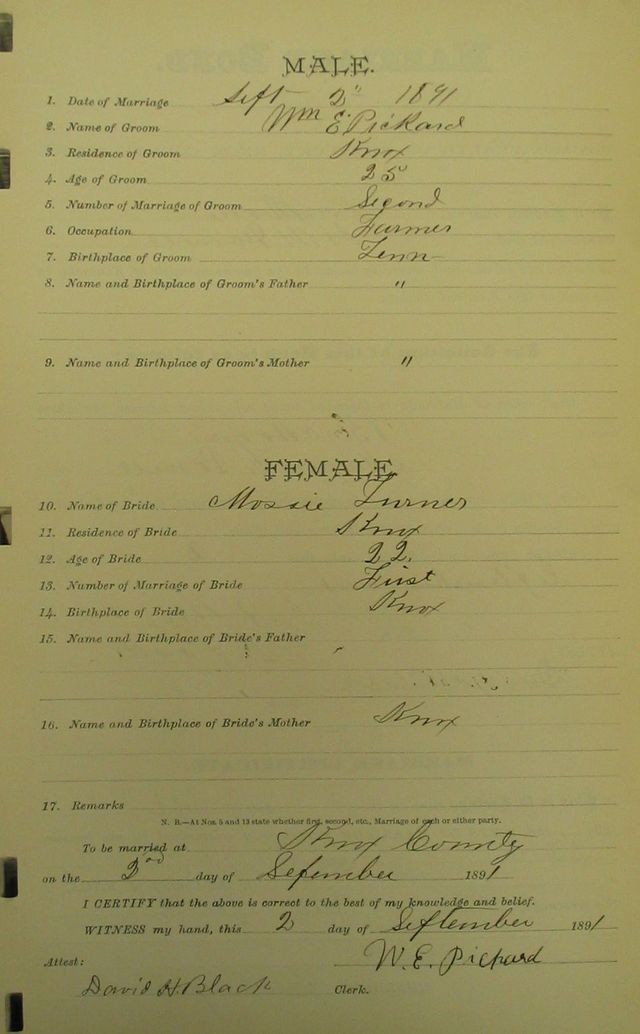 MALE.
1. Date of Marriage Sept 2" 1891
2. Name of Groom Wm E. Pickard
3. Residence of Groom Knox
4. Age of Groom 25
5. Number of Marriage of Groom Second
6. Occupation Farmer
7. Birthplace of Groom Tenn
8. Name and Birthplace of Groom's Father "
9. Name and Birthplace of Groom's Mother "
FEMALE
10. Name of Bride Mossie Turner
11. Residence of Bride Knox
12. Age of Bride 22.
13. Number of Marriage of Bride First
14. Birthplace of Bride Knox
15. Name and Birthplace of Bride's Father
16. Name and Birthplace of Bride's Mother Knox
17. Remarks
N. B.—At Nos. 5 and 13 state whether first, second, etc., Marriage of each or either party.
To be married at Knox County
on the 2nd day of September 1891
I CERTIFY that the above is correct to the best of my knowledge and belief.
WITNESS my hand, this 2 day of September 1891
W. E. Pickard
Attest:
David H. Black Clerk.